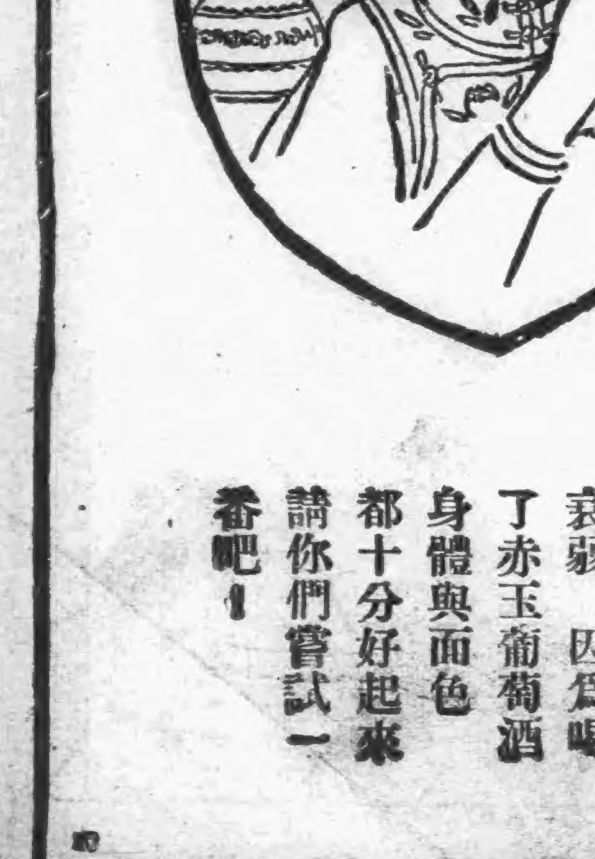 衰弱 因爲喝
了赤玉葡萄酒
身體與面色
都十分好起來
請你們嘗試一
番吧！